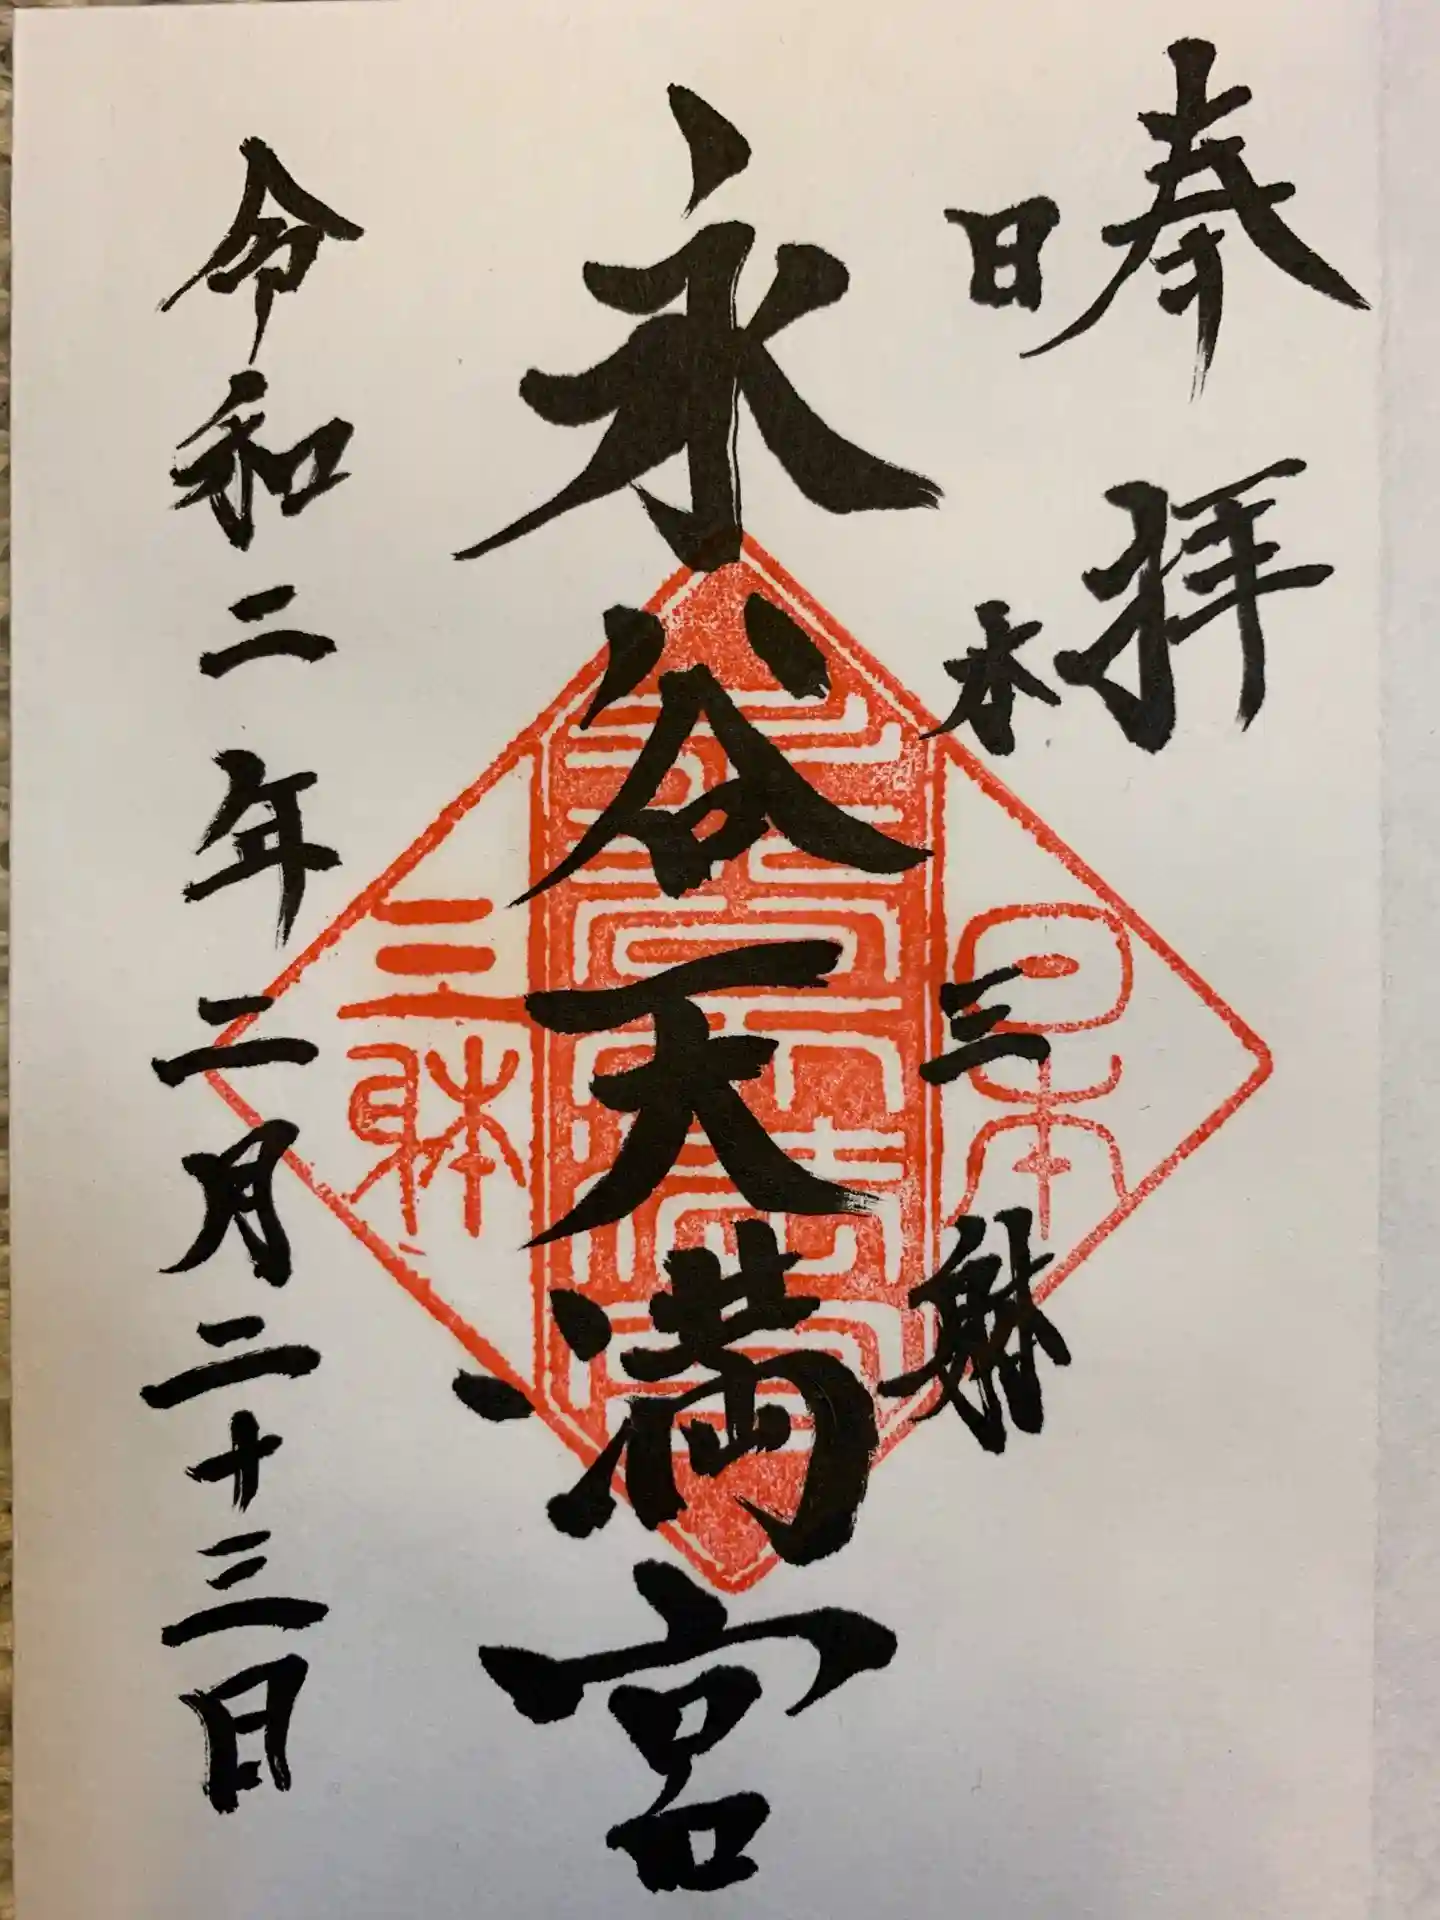 奉拝
日本三躰
永谷天満宮
日本
三躰
令和二年二月二十三日